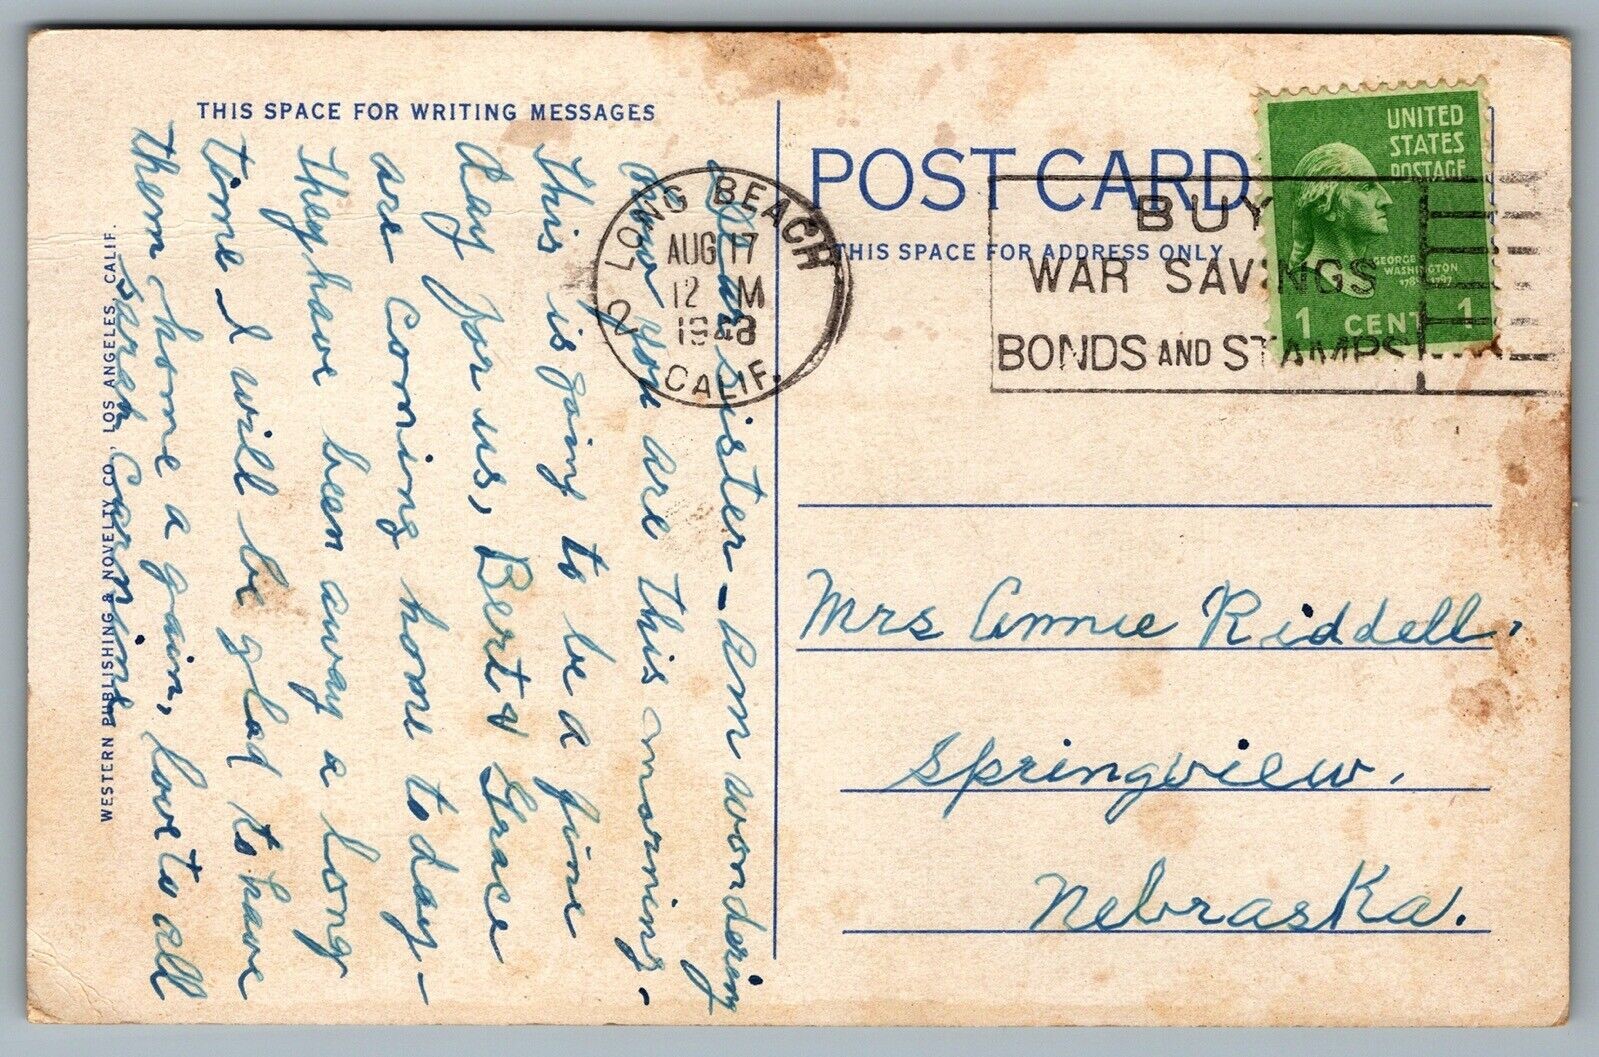 THIS SPACE FOR WRITING MESSAGES
Dear sister - Am wondering
how you are this morning.
This is going to be a fine
day for us, Bert & Grace
are coming home to day -
They have been away a long
time I will be glad to have
them home a gain, love to all
Sarah
WESTERN PUBLISHING & NOVELTY CO., LOS ANGELES, CALIF.
LONG BEACH
AUG 17
12 M
1943
CALIF.
2
POST CARD
THIS SPACE FOR ADDRESS ONLY
BUY
WAR SAVINGS
BONDS AND STAMPS
UNITED
STATES
POSTAGE
GEORGE
WASHINGTON
1789-1797
1 CENT 1
Mrs Annie Riddell,
Springview,
Nebraska.